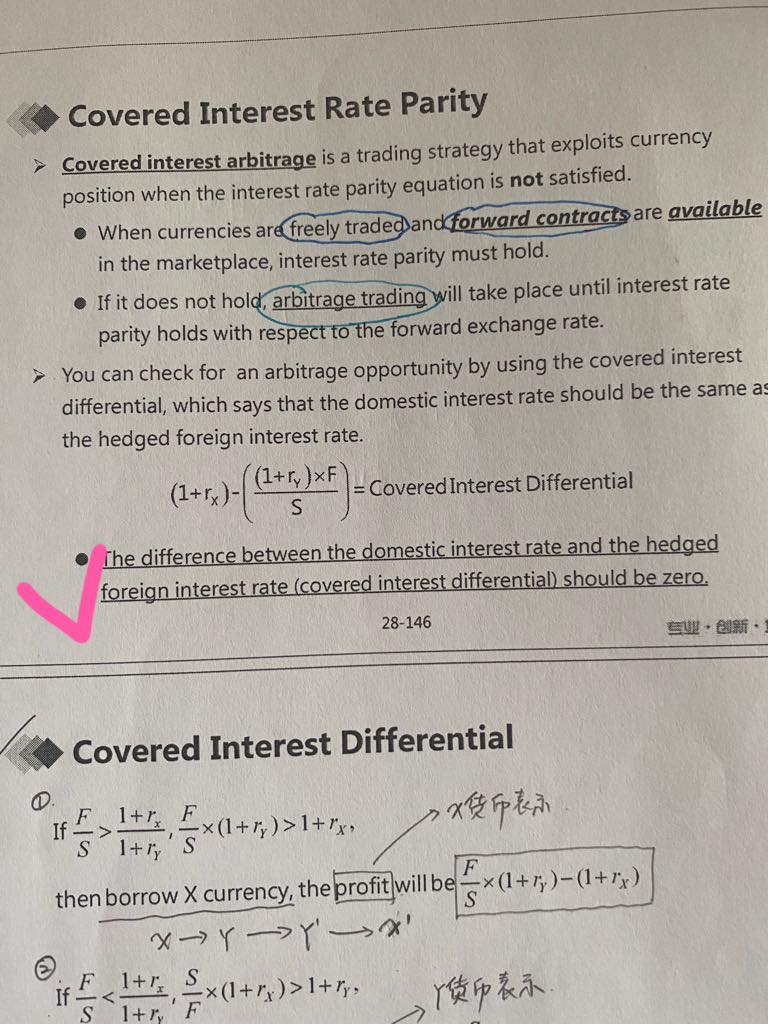 Covered Interest Rate Parity
➢ Covered interest arbitrage is a trading strategy that exploits currency
position when the interest rate parity equation is not satisfied.
● When currencies are freely traded and forward contracts are available
in the marketplace, interest rate parity must hold.
● If it does not hold, arbitrage trading will take place until interest rate
parity holds with respect to the forward exchange rate.
➢ You can check for an arbitrage opportunity by using the covered interest
differential, which says that the domestic interest rate should be the same as
the hedged foreign interest rate.
(1+r_X)-((1+r_Y)×F/S)=Covered Interest Differential
● The difference between the domestic interest rate and the hedged
foreign interest rate (covered interest differential) should be zero.
28-146
专业·创新·
Covered Interest Differential
①.
X货币表示.
If F/S > (1+r_x)/(1+r_Y), F/S×(1+r_Y)>1+r_X,
then borrow X currency, the profit will be F/S×(1+r_Y)-(1+r_X)
X→Y→Y'→X'
②.
If F/S < (1+r_x)/(1+r_Y), S/F×(1+r_X)>1+r_Y,
Y货币表示.